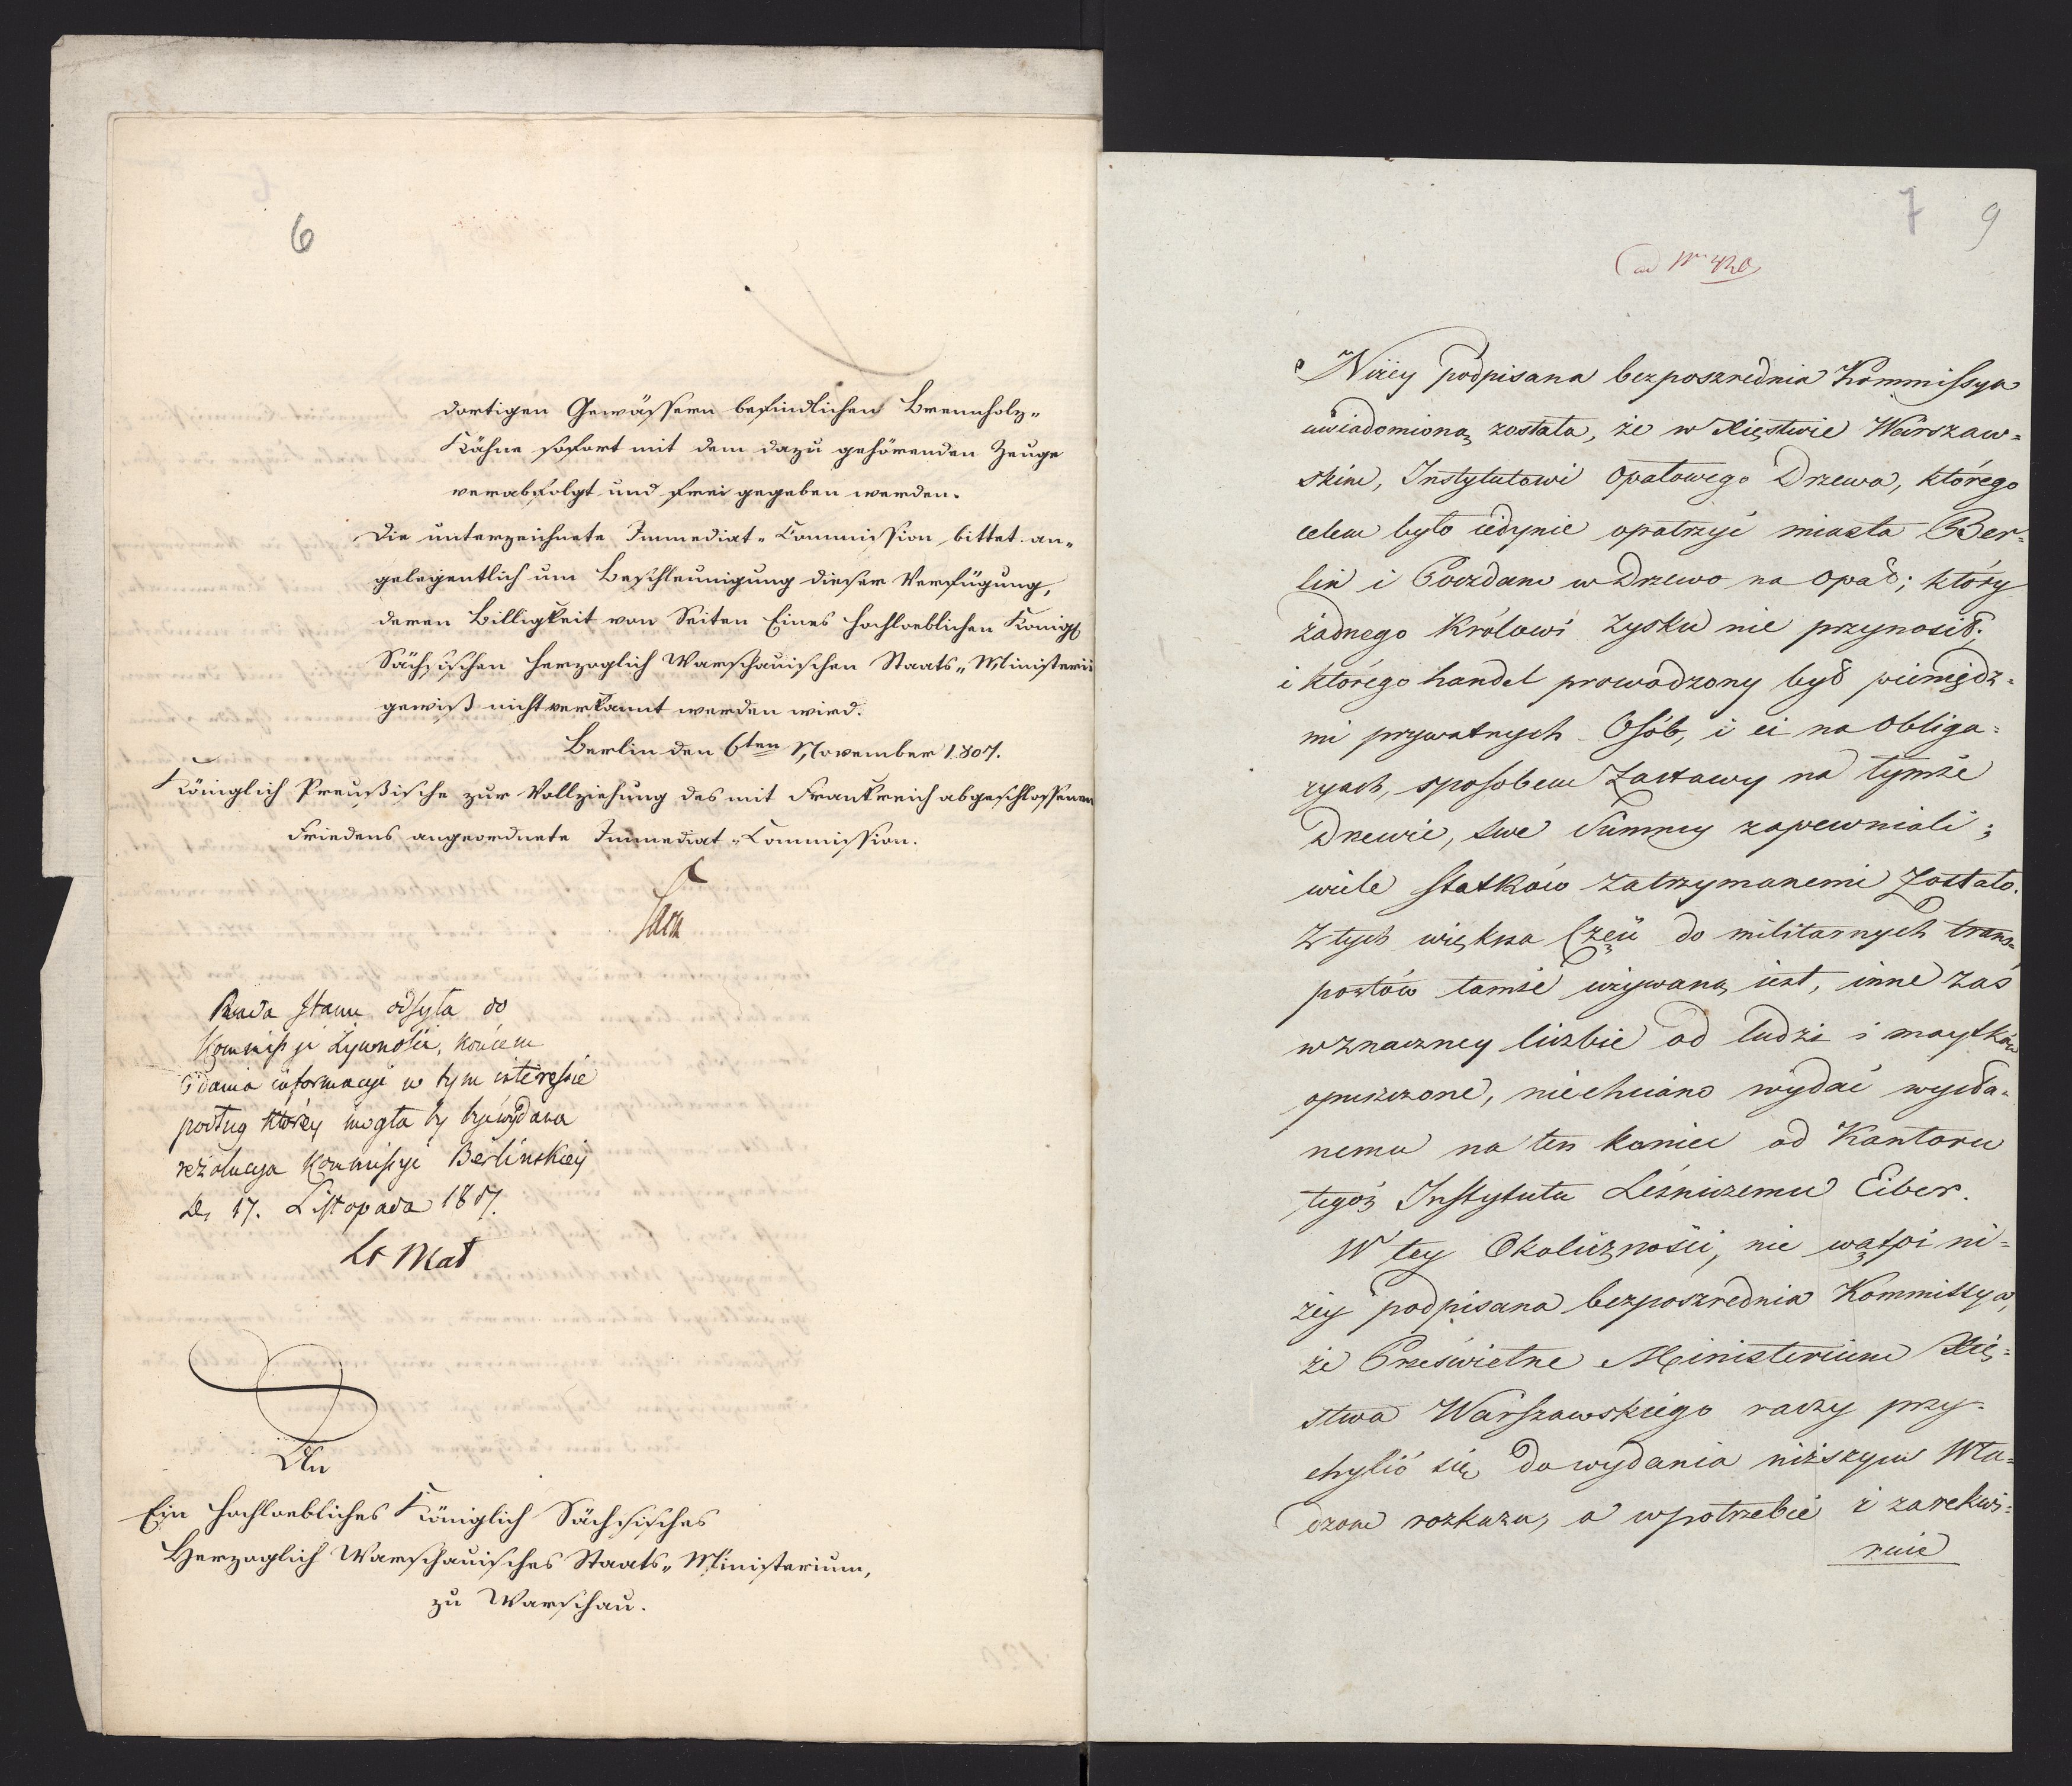 6
dortigen Gewässern befindlichen Brennholz-
Kähne sofort mit dem dazu gehörenden Zeuge
verabfolgt und frei gegeben werden.
Die unterzeichnete Immediat-Commission bittet an-
gelegentlich um Beschleunigung dieser Verfügung,
deren Billigkeit von Seiten Eines Hochloeblichen Königl
Sächsischen Herzoglich Warschauischen Staats-Ministerii
gewiß nicht verkannt werden wird.
Berlin den 6ten November 1807.
Königlich Preußische zur Vollziehung des mit Frankreich abgeschlossenen
Friedens angeordnete Immediat-Commission.
Rada Stanu odsyła do
Kommissyi Żywności, końcem
Zdania informacyi w tym interessie
podług którey mogła by być wydana
rezolucya Kommissyi Berlinskiey
D. 17. Listopada 1807.
St Mał
An
Ein Hochloebliches Königlich Sächsisches
Herzoglich Warschauisches Staats-Ministerium,
zu Warschau.
7 9
ad Nr 420
Niżey podpisana bezposzrednia Kommissya
uwiadomioną została, że w Xięstwie Warszaw=
skim, Instytutowi Opałowego Drzewa, którego
celem było iedynie opatrzyć miasta Ber=
lin i Poczdam w Drzewo na opał; który
żadnego Królowi zysku nie przynosił;
i którego handel prowadzony był pieniędz=
mi prywatnych Osób, i ci na Obliga=
cyach, sposobem Zastawy na tymże
Drzewie, swe Summy zapewniali;
wiele statków zatrzymanemi zostało.
Z tych większa część do militarnych trans=
portów tamże używaną iest, inne zaś
w znaczney liczbie od ludzi i maytków
opuszczone, niechciano wydać wysła=
nemu na ten koniec od Kantoru
tegoż Instytutu Leśniczemu Eiber.
W tey Okoliczności, nie wątpi ni=
żey podpisana bezposzrednia Kommissya,
że Prześwietne Ministerium Xię=
stwa Warszawskiego raczy przy=
chylić się do wydania niższym Wła=
dzom rozkazu, a w potrzebie i zarekwi=
ruie